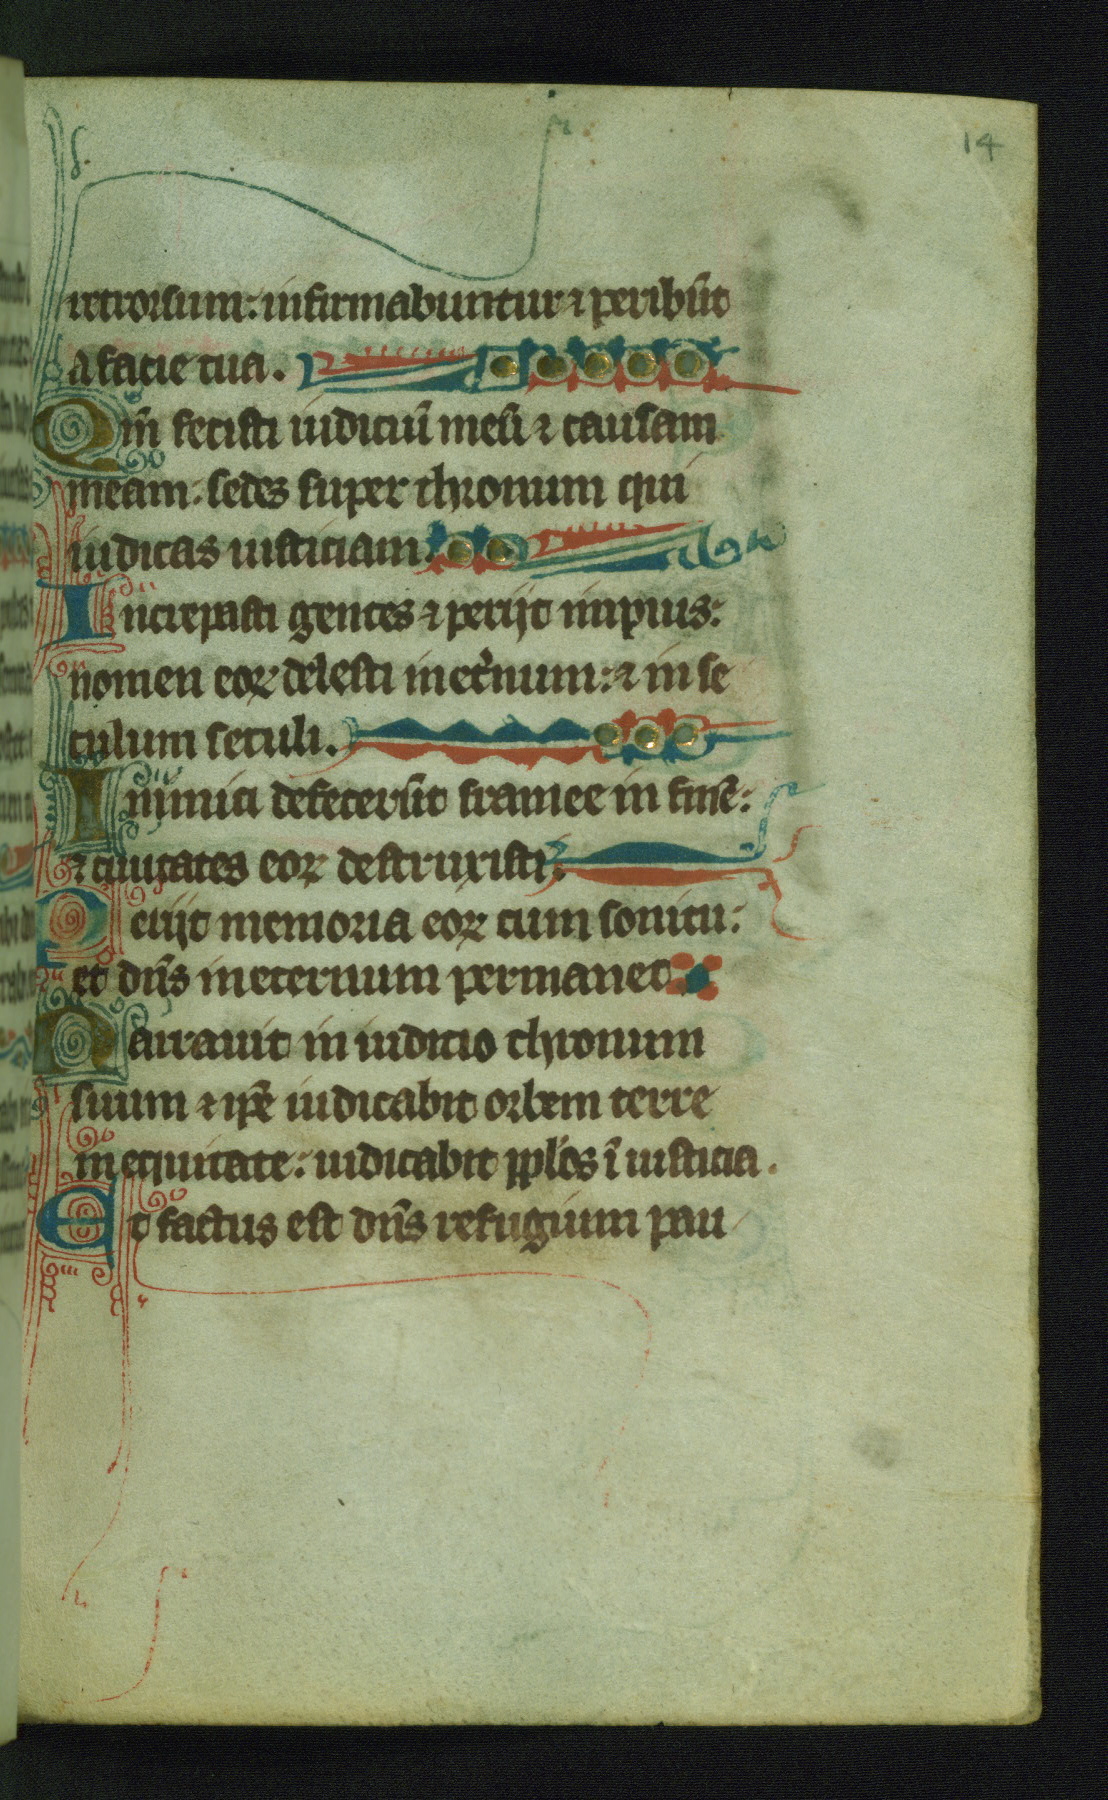 14
retrorsum: infirmabuntur ⁊ peribūt
a facie tua.
Qm̄ fecisti iudiciū meū ⁊ causam
meam. sedes super thronum qui
iudicas iusticiam.
Increpasti gentes ⁊ perijt impius:
nomen eoꝝ delesti in et̾num: ⁊ in se
culum seculi.
Inimici defecerūt framee in finē:
⁊ ciuitates eoꝝ destruxisti.
Perijt memoria eoꝝ cum sonitu:
et dn̄s in eternum permanet
Parauit in iudicio thronum
suum ⁊ ip̄e iudicabit orbem terre
in equitate: iudicabit ppl'os ī iusticia.
Et factus est dn̄s refugium pau